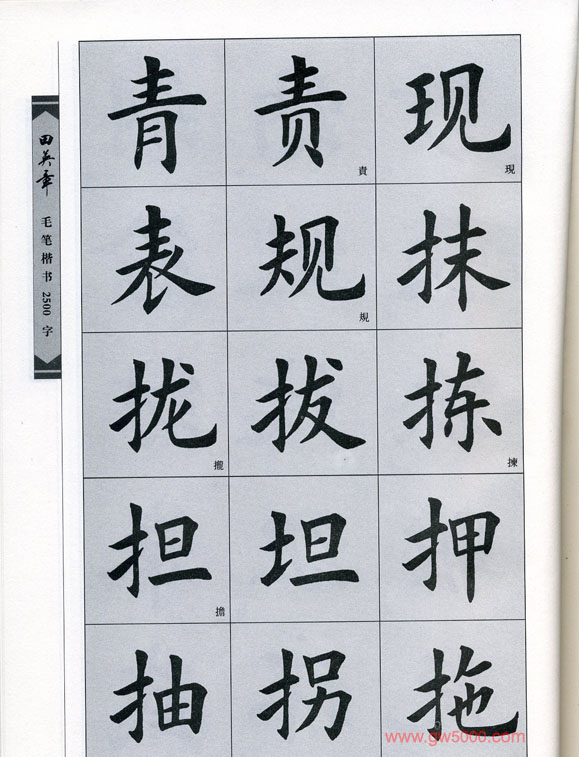 田英章 毛笔楷书2500字
青 责 现
責 現
表 规 抹
規
拢 拔 拣
攏 揀
担 坦 押
擔
抽 拐 拖
www.gw5000.com